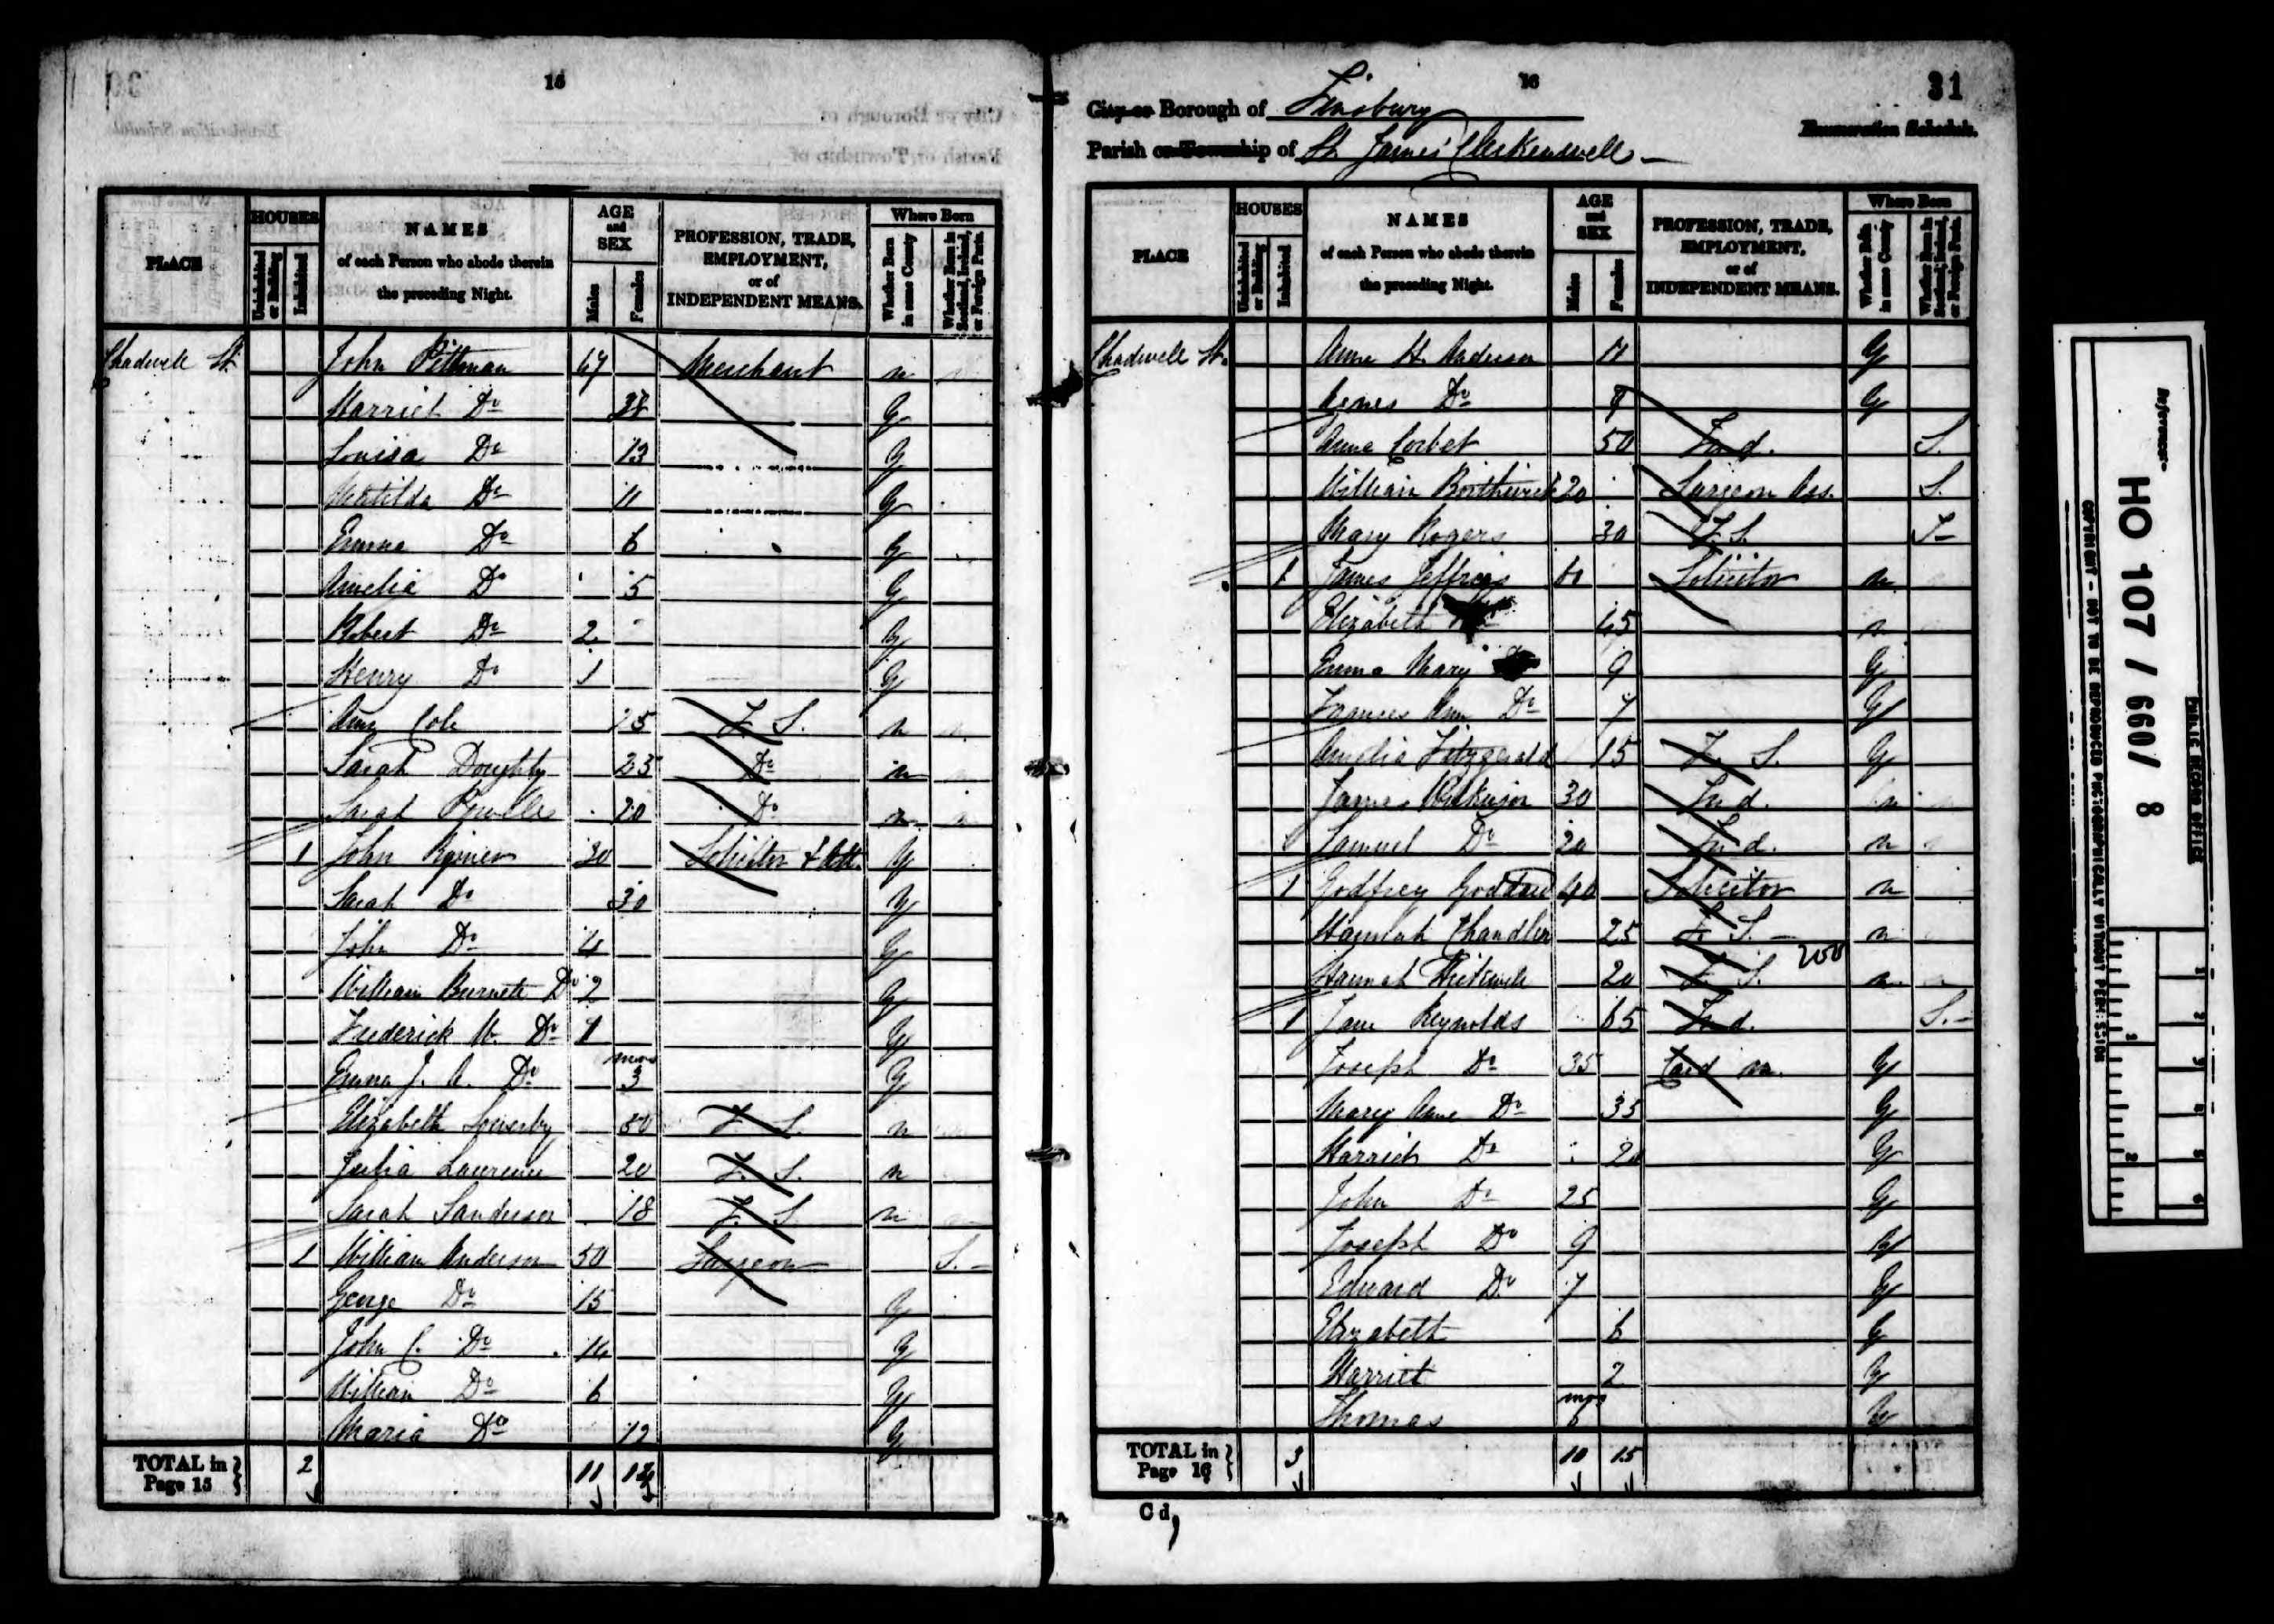 15
PLACE
HOUSES
Uninhabited or Building
Inhabited
NAMES
of each Person who abode therein
the preceding Night.
AGE
and
SEX
Males
Females
PROFESSION, TRADE,
EMPLOYMENT,
or of
INDEPENDENT MEANS.
Where Born
Whether Born in same County
Whether Born in Scotland, Ireland, or Foreign Parts.
Chadwell St. John Pittman 47 Merchant n
Harriet Do Y
Louisa Do 13 Y
Matilda Do 11 Y
Emma Do 6 Y
Amelia Do 5 Y
Robert Do 2 Y
Henry Do 1 Y
Ann Cole 25 F. S. n
Sarah Doughty 25 Do n
Sarah 20 Do n
1 John 30 Solicitor & Att. Y
Sarah Do 30 Y
John Do 4 Y
William Burnett Do 2 Y
Frederick W. Do 1 Y
Emma J. A. Do mos 3 Y
Elizabeth Sowerby 50 F. S. n
Julia Laurence 20 F. S. n
Sarah Sanderson 18 F. S. n
1 William Anderson 50 Surgeon S.
George Do 15 Y
John C. Do 14 Y
William Do 6 Y
Maria Do 12 Y
TOTAL in
Page 15 } 2 11 14
16
31
City or Borough of Finsbury
Parish or Township of St. James Clerkenwell
Enumeration Schedule.
PLACE
HOUSES
Uninhabited or Building
Inhabited
NAMES
of each Person who abode therein
the preceding Night.
AGE
and
SEX
Males
Females
PROFESSION, TRADE,
EMPLOYMENT,
or of
INDEPENDENT MEANS.
Where Born
Whether Born in same County
Whether Born in Scotland, Ireland, or Foreign Parts.
Chadwell St. Anne H. Anderson 11 Y
Agnes Do 8 Y
Anne Corbet 50 Ind. S.
William Borthwick 20 Surgeon Ass. S.
Mary Rogers 30 F. S. I
1 James Jeffreys 60 Solicitor n
Elizabeth 45 n
Emma Mary Do 9 Y
Frances Ann Do 7 Y
Amelia Fitzgerald 15 F. S. Y
James Wilkinson 30 Ind. n
Samuel Do 20 Ind. n
1 Godfrey Goddard 40 Solicitor n
Hannah Chandler 25 F. S. n
200
Hannah 20 F. S. n
1 Jane Reynolds 65 Ind. S.
Joseph Do 35 Card m. Y
Mary Anne Do 35 Y
Harriet Do 20 Y
John Do 25 Y
Joseph Do 9 Y
Edward Do 7 Y
Elizabeth 6 Y
Harriet 2 Y
Thomas mos 6 Y
TOTAL in
Page 16 } 3 10 15
C d
Reference:-
HO 107 / 660 / 8
PUBLIC RECORD OFFICE
COPYRIGHT - NOT TO BE REPRODUCED PHOTOGRAPHICALLY WITHOUT PERMISSION